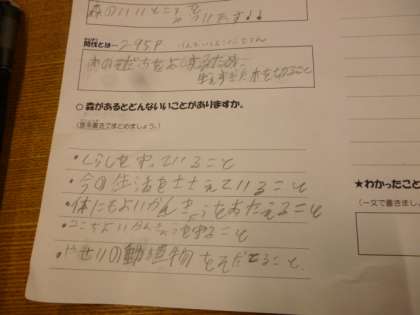 森のいいところを
間伐とは… P.95
木のそだちをよくするため、
生えすぎた木を切ること
○ 森があるとどんないいことがありますか。
(箇条書きでまとめましょう。)
・くらしを守っていること
・今の生活をささえていること
・体にもよいかんきょうをあたえること
・ここちよいかんきょうを守ること
・やせいの動植物をそだてること
★わかったこと
(一文で書きまし